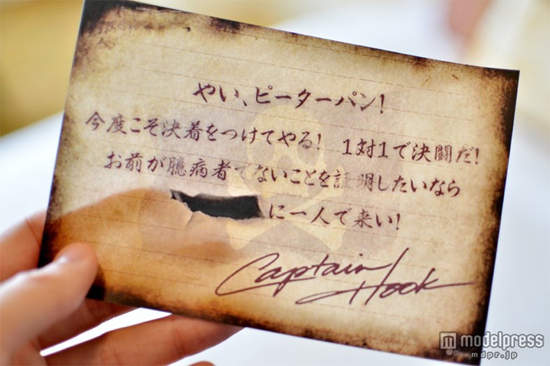 やい、ピーターパン!
今度こそ決着をつけてやる! 1対1で決闘だ!
お前が臆病者でないことを証明したいなら
に一人で来い!
Captain Hook
modelpress
mdpr.jp